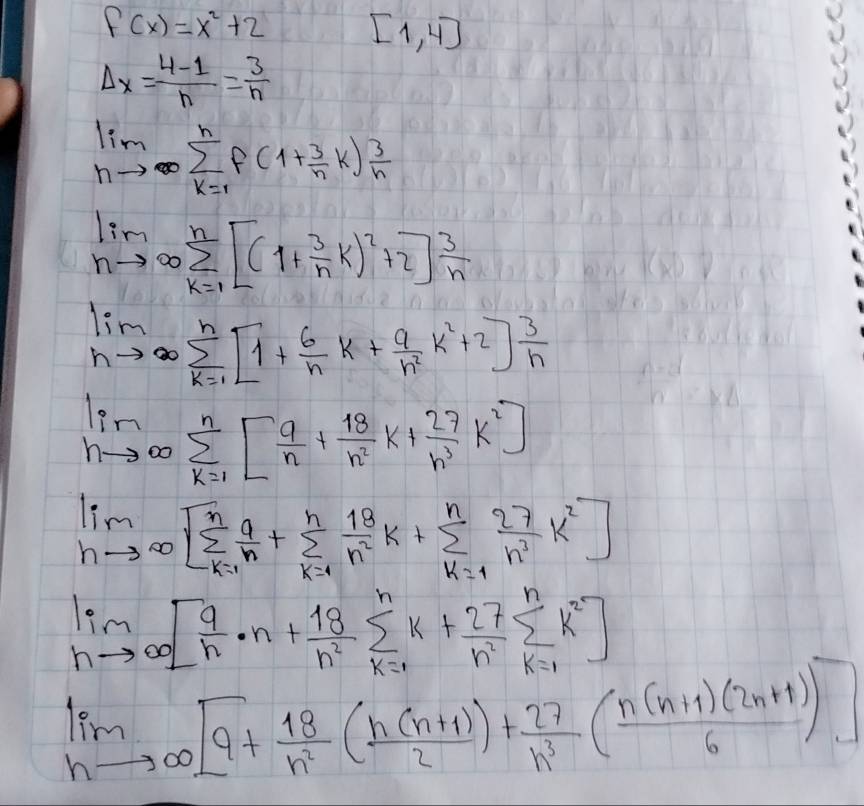 f(x)=x²+2 [1,4]
Δx=(4-1)/n=3/n
lim n→∞ Σ_{K=1}^{n} f(1+3/n K)3/n
lim n→∞ Σ_{K=1}^{n} [(1+3/n K)²+2]3/n
lim n→∞ Σ_{K=1}^{n} [1+6/n K+9/n² K²+2]3/n
lim n→∞ Σ_{K=1}^{n} [9/n+18/n² K+27/n³ K²]
lim n→∞ [Σ_{K=1}^{n} 9/n+Σ_{K=1}^{n} 18/n² K+Σ_{K=1}^{n} 27/n³ K²]
lim n→∞ [9/n·n+18/n² Σ_{K=1}^{n} K+27/n² Σ_{K=1}^{n} K²]
lim n→∞ [9+18/n² (n(n+1)/2)+27/n³ (n(n+1)(2n+1)/6)]